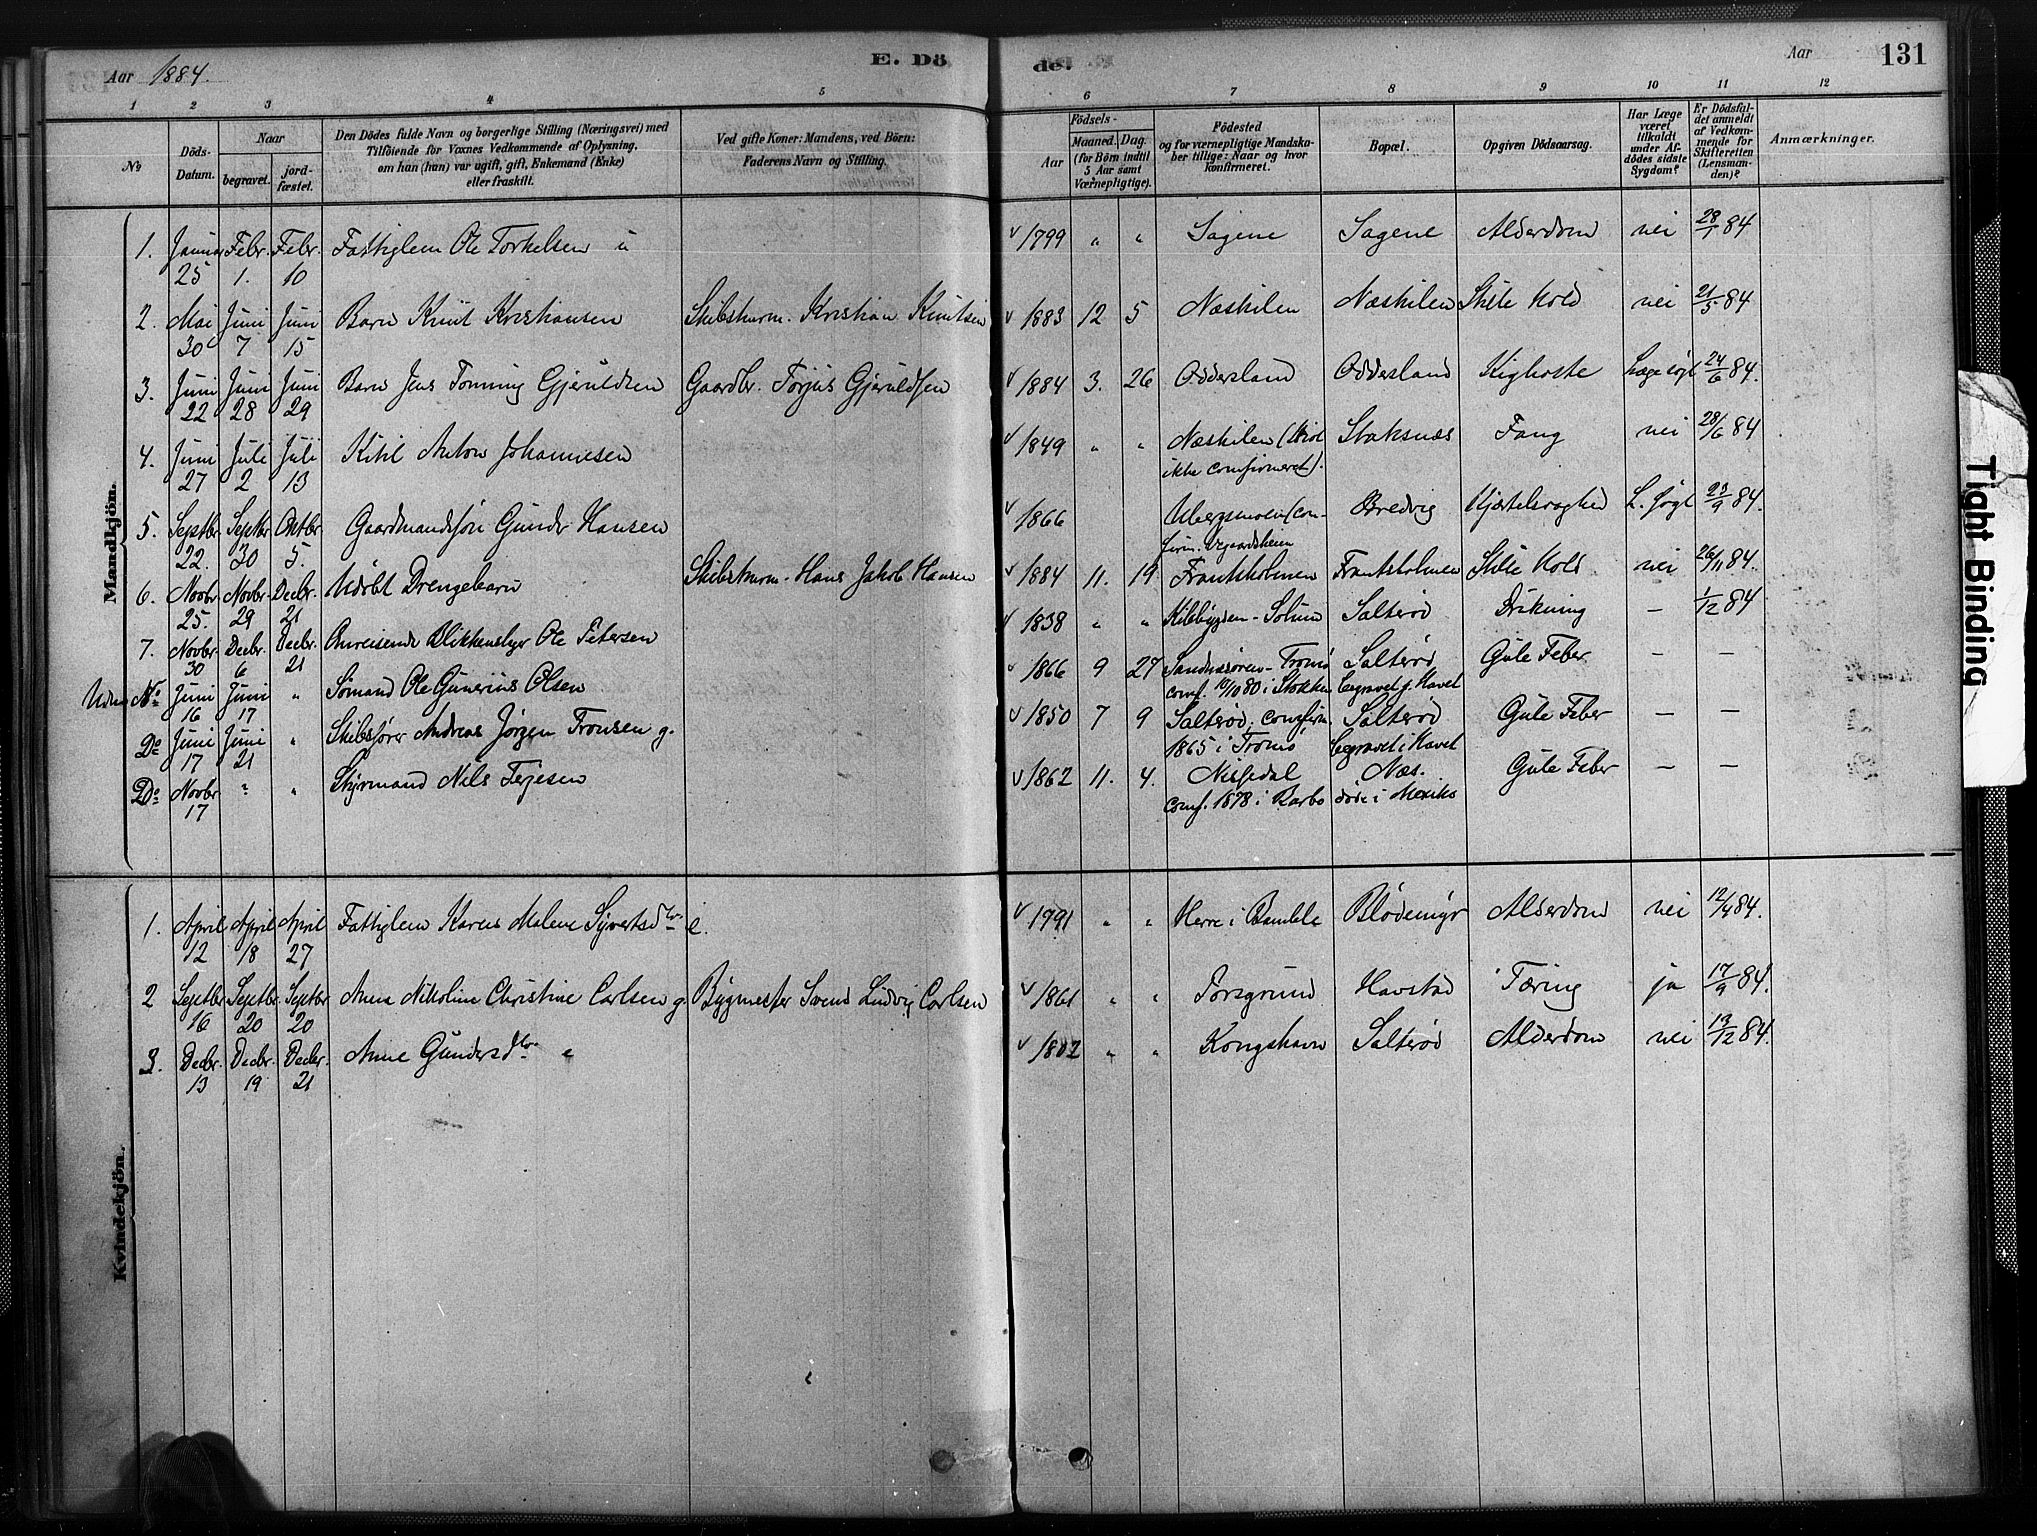 Aar 1884.
E. Dö
de.
Aar
131
1 2 3 4 5 6 7 8 9 10 11 12
No
Döds-Datum.
Naar
begravet.
jordfæstet.
Den Dödes fulde Navn og borgerlige Stilling (Næringsvei) med
Tilföiende for Voxnes Vedkommende af Oplysning,
om han (hun) var ugift, gift, Enkemand (Enke)
eller fraskilt.
Ved gifte Koner: Mandens, ved Börn:
Faderens Navn og Stilling.
Födsels-
Aar
Maaned. Dag.
(for Börn indtil
5 Aar samt
Værnepligtige).
Födested
og for værnepligtige Mandskaber tillige: Naar og hvor
konfirmeret.
Bopæl.
Opgiven Dödsaarsag.
Har Læge
været
tilkaldt
under Afdödes sidste
Sygdom?
Er Dödsfaldet anmeldt
af Vedkommende for
Skifteretten
(Lensmanden)?
Anmærkninger.
Mandkjön.
1. Januar 25 Febr. 1. Febr. 10 Fattiglem Ole Torkelsen u 1799 " " Sagene Sagene Alderdom nei 28/1 84
2. Mai 30 Juni 7 Juni 15 Barn Knut Kristiansen Skibstmrm. Kristian Knutsen 1883 12 5 Næskilen Næskilen Stite Hold nei 21/5 84
3. Juni 22 Juni 28 Juni 29 Barn Jens Tonning Gjeruldsen Gaardbr. Torjus Gjeruldsen 1884 3. 26 Oddersland Oddersland Kighoste Læge søgt 24/6 84.
4. Juni 27 Juli 2 Juli 13 Kitil Anton Johannesen 1849 " " Næskilen ikke confirmeret). Staksnæs Fang nei 28/6 84
5. Septbr. 22. Septbr 30 Oktbr 5. Gaardmandssøn Gunder Hansen 1866 Ubergsmoen (confirm. Vegaardsheien Bredvig Kjertelsvaghed L. søgt 23/9 84.
6. Novbr 25. Novbr. 29 Decbr. 21 Udøbt Drengebarn Skibstmrm. Hans Jakob Hansen 1884 11. 19 Frantsholmen Frantsholmen Stite Hold nei 26/11 84.
7. Novbr. 30 Decbr. 6 Decbr. 21 Omreisende Blikkenslager Ole Petersen 1838 " " Kilebygden - Solum Salterød Drukning – 1/12 84
Uden No. Juni 16 Juni 17 " Sømand Ole Gunerius Olsen 1866 9 27 Sandnæsøren - Tromø conf. 10/10 80 i Stokken Salterød, begravet i Havet Gule Feber – –
Do Juni 17 Juni 21 " Skibsfører Andreas Jørgen Tronsen g. 1850 7 9 Salterød, confirm. 1865 i Tromø Salterød begravet i Havet Gule Feber – –
Do Novbr 17 " " Styrmand Nils Terjesen 1862 11. 4. Nissedal conf. 1878 i Barbo Næs. døde i Mexiko Gule Feber – –
Kvindekjön.
1. April 12 April 18 April 27 Fattiglem Karen Malene Syvertsdtr. e. 1791 " " Herre i Bamble Blødemyr Alderdom nei 12/4 84.
2 Septbr 16 Septbr 20 Septbr 20 Anna Nikoline Christine Carlsen g. Bygmester Svend Ludvig Carlsen 1861 " " Porsgrund Havstad Tæring ja 17/9 84.
3. Decbr. 13 Decbr. 19 Decbr. 21 Anne Gundersdtr. " 1802 " " Kongshavn Salterød Alderdom nei 13/12 84.
Tight Binding